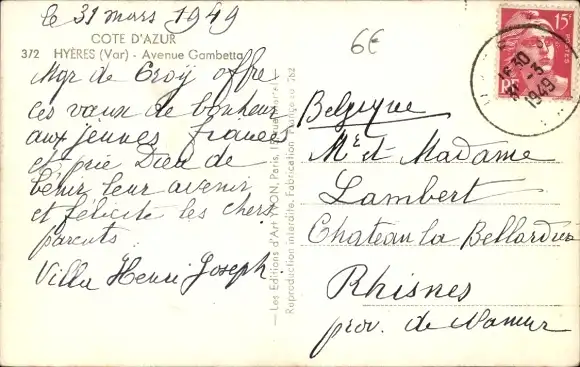 le 31 mars 1949
COTE D'AZUR
372 HYÈRES (Var) - Avenue Gambetta
Mgr de Croÿ offre
ses vœux de bonheur
aux jeunes fiancés
et prie Dieu de
bénir leur avenir
et félicite les chers
parents
Villa Henri Joseph
— Les Editions d'Art YVON, Paris, 
Reproduction interdite. Fabrication Française 782
6€
15F
POSTES
RF
30
-3
1949
Belgique
Mr et Madame
Lambert
Chateau la Bellardière
Rhisnes
prov. de Namur